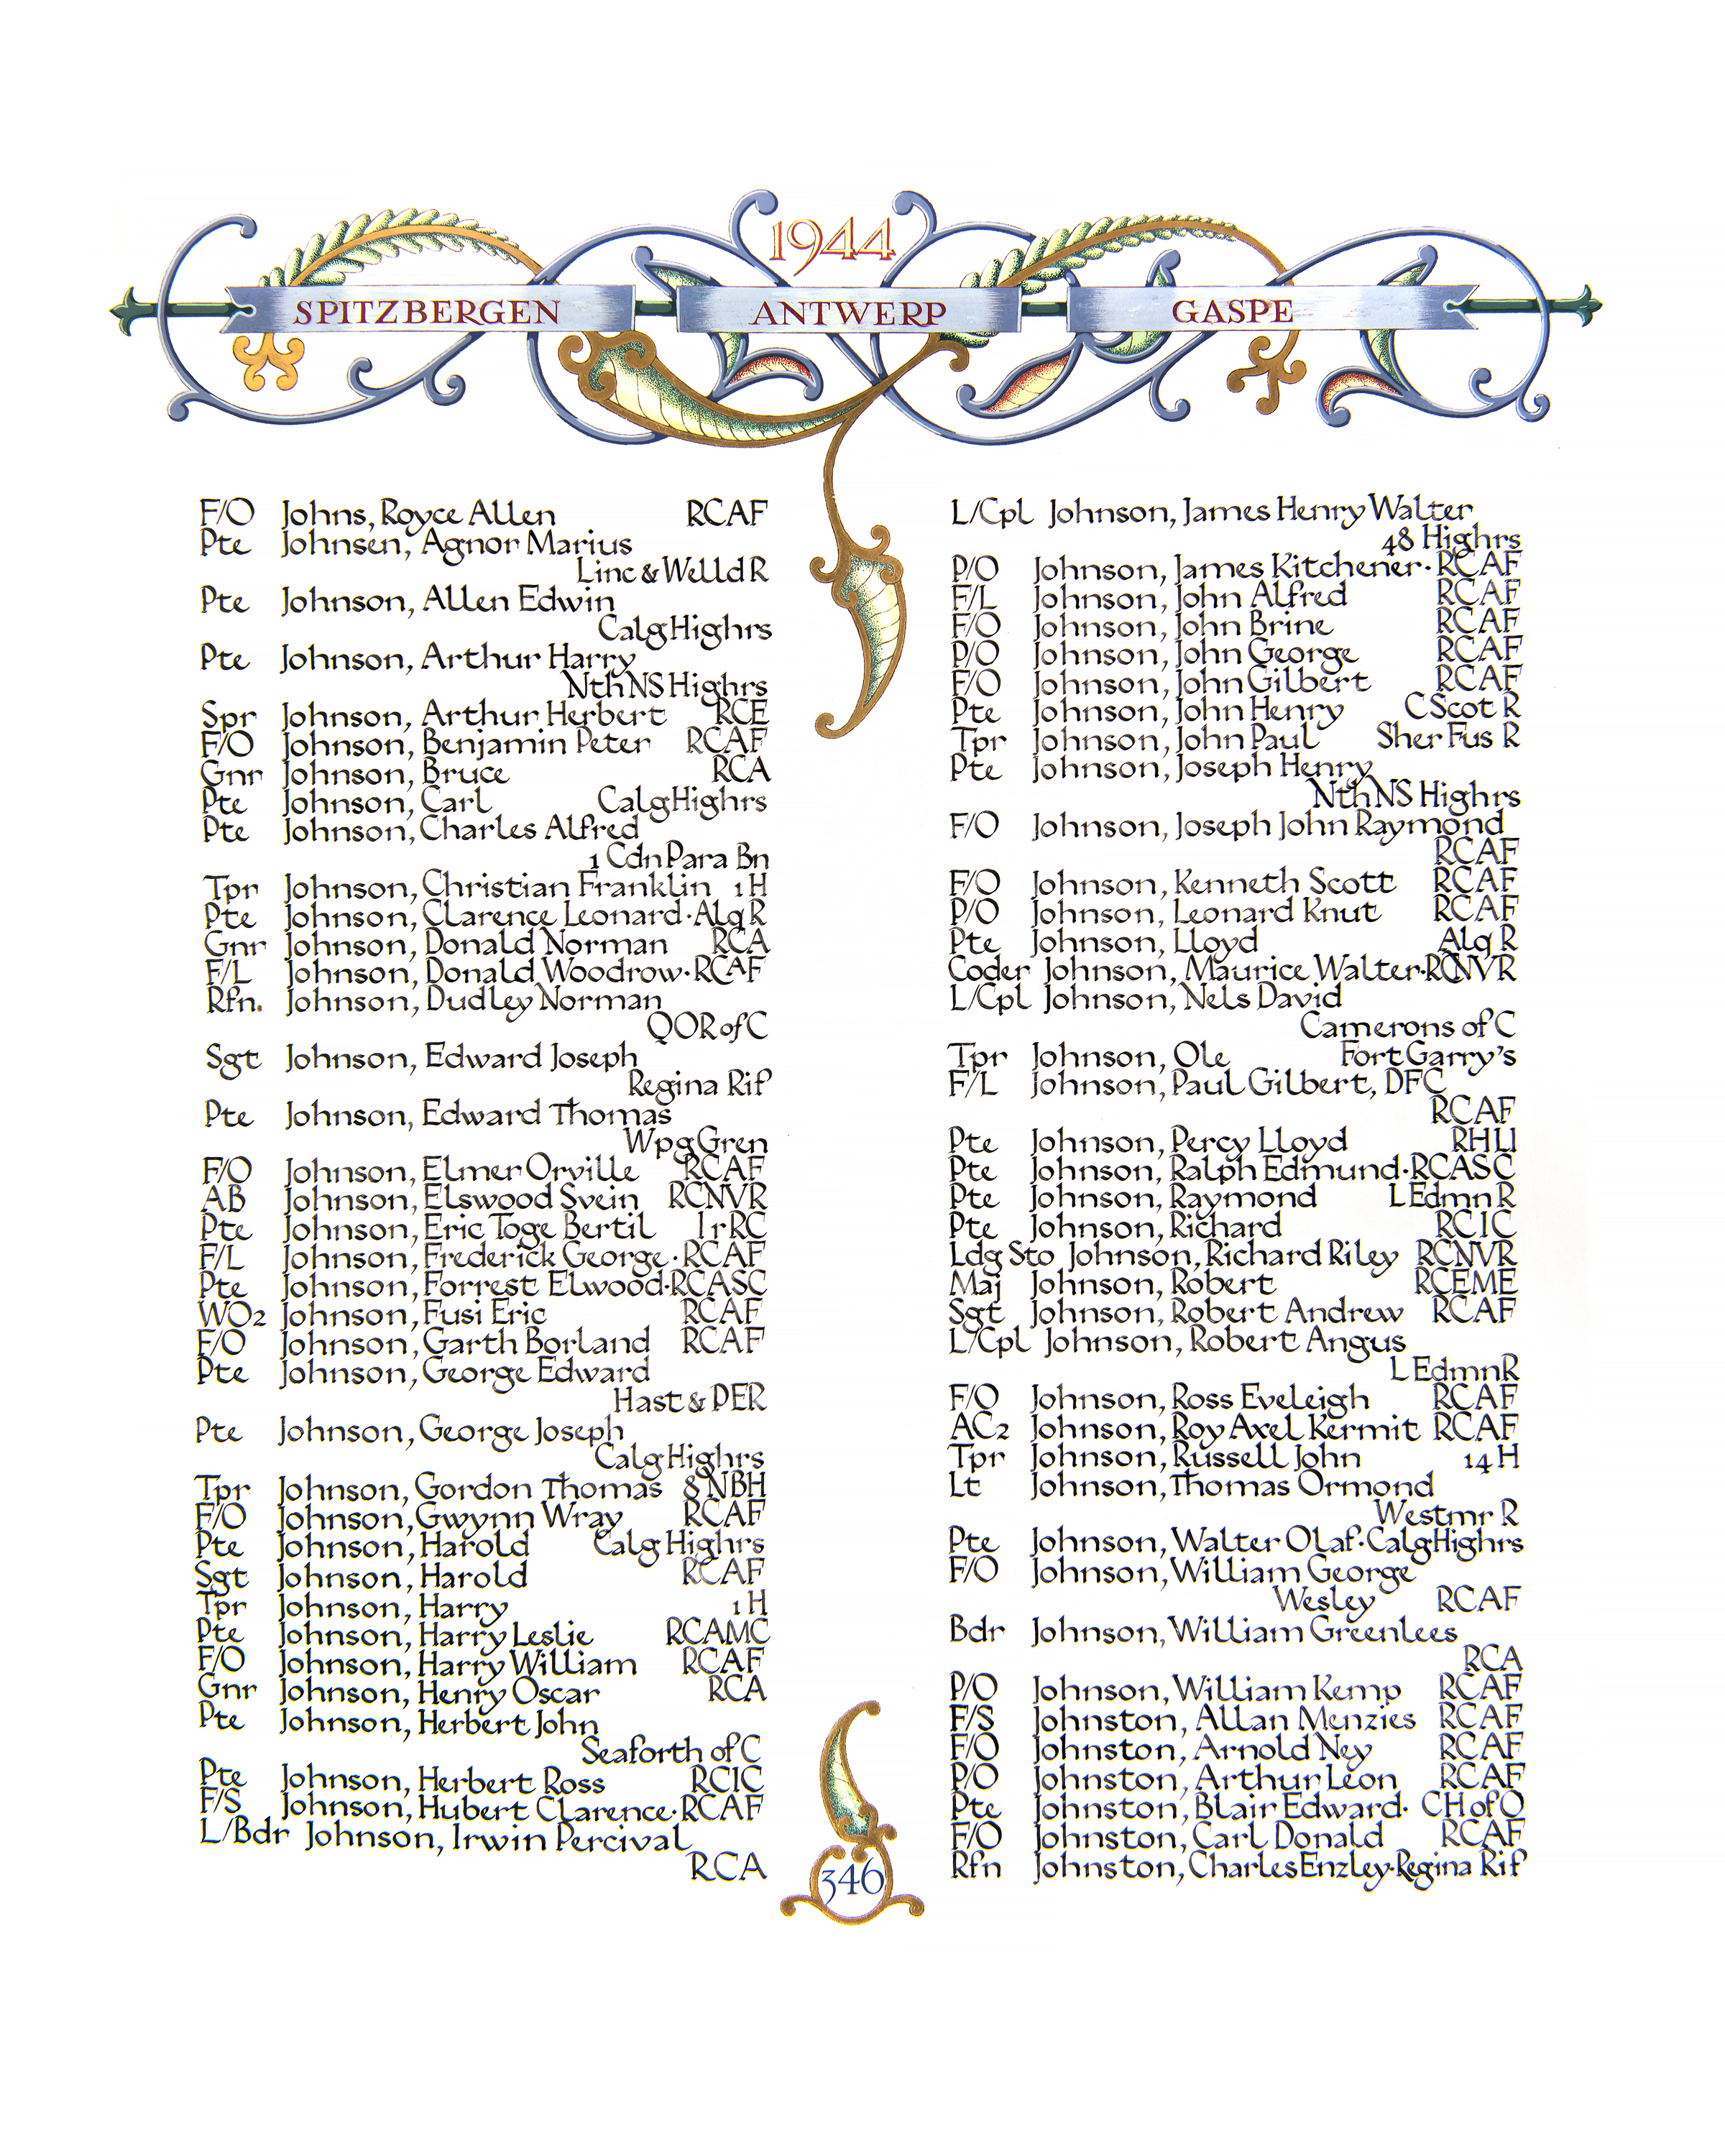 1944
SPITZBERGEN ANTWERP GASPE
F/O Johns, Royce Allen RCAF
Pte Johnsen, Agnor Marius
Linc & Welld R
Pte Johnson, Allen Edwin
Calg Highrs
Pte Johnson, Arthur Harry
Nth NS Highrs
Spr Johnson, Arthur Herbert RCE
F/O Johnson, Benjamin Peter RCAF
Gnr Johnson, Bruce RCA
Pte Johnson, Carl Calg Highrs
Pte Johnson, Charles Alfred
1 Cdn Para Bn
Tpr Johnson, Christian Franklin 1 H
Pte Johnson, Clarence Leonard·Alq R
Gnr Johnson, Donald Norman RCA
F/L Johnson, Donald Woodrow·RCAF
Rfn. Johnson, Dudley Norman
QOR of C
Sgt Johnson, Edward Joseph
Regina Rif
Pte Johnson, Edward Thomas
Wpg Gren
F/O Johnson, Elmer Orville RCAF
AB Johnson, Elswood Svein RCNVR
Pte Johnson, Eric Toge Bertil IrRC
F/L Johnson, Frederick George·RCAF
Pte Johnson, Forrest Elwood·RCASC
WO2 Johnson, Fusi Eric RCAF
F/O Johnson, Garth Borland RCAF
Pte Johnson, George Edward
Hast & PER
Pte Johnson, George Joseph
Calg Highrs
Tpr Johnson, Gordon Thomas 8 NBH
F/O Johnson, Gwynn Wray RCAF
Pte Johnson, Harold Calg Highrs
Sgt Johnson, Harold RCAF
Tpr Johnson, Harry 1 H
Pte Johnson, Harry Leslie RCAMC
F/O Johnson, Harry William RCAF
Gnr Johnson, Henry Oscar RCA
Pte Johnson, Herbert John
Seaforth of C
Pte Johnson, Herbert Ross RCIC
F/S Johnson, Hubert Clarence·RCAF
L/Bdr Johnson, Irwin Percival
RCA
L/Cpl Johnson, James Henry Walter
48 Highrs
P/O Johnson, James Kitchener·RCAF
F/L Johnson, John Alfred RCAF
F/O Johnson, John Brine RCAF
P/O Johnson, John George RCAF
F/O Johnson, John Gilbert RCAF
Pte Johnson, John Henry C Scot R
Tpr Johnson, John Paul Sher Fus R
Pte Johnson, Joseph Henry
Nth NS Highrs
F/O Johnson, Joseph John Raymond
RCAF
F/O Johnson, Kenneth Scott RCAF
P/O Johnson, Leonard Knut RCAF
Pte Johnson, Lloyd Alq R
Coder Johnson, Maurice Walter·RCNVR
L/Cpl Johnson, Nels David
Camerons of C
Tpr Johnson, Ole Fort Garry's
F/L Johnson, Paul Gilbert, DFC
RCAF
Pte Johnson, Percy Lloyd RHLI
Pte Johnson, Ralph Edmund·RCASC
Pte Johnson, Raymond L Edmn R
Pte Johnson, Richard RCIC
Ldg Sto Johnson, Richard Riley RCNVR
Maj Johnson, Robert RCEME
Sgt Johnson, Robert Andrew RCAF
L/Cpl Johnson, Robert Angus
L Edmn R
F/O Johnson, Ross Eveleigh RCAF
AC2 Johnson, Roy Axel Kermit RCAF
Tpr Johnson, Russell John 14 H
Lt Johnson, Thomas Ormond
Westmr R
Pte Johnson, Walter Olaf·Calg Highrs
F/O Johnson, William George
Wesley RCAF
Bdr Johnson, William Greenlees
RCA
P/O Johnson, William Kemp RCAF
F/S Johnston, Allan Menzies RCAF
F/O Johnston, Arnold Ney RCAF
P/O Johnston, Arthur Leon RCAF
Pte Johnston, Blair Edward· CH of O
F/O Johnston, Carl Donald RCAF
Rfn Johnston, Charles Enzley·Regina Rif
346